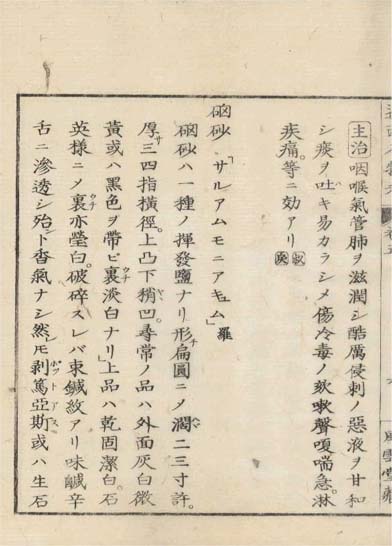 主治咽喉氣管肺ヲ滋潤シ酷厲侵刺ノ惡液ヲ甘和
シ痰ヲ吐キ易カラシメ傷冷毒ノ欬嗽聲嗄喘急淋
疾痛等ニ効アリ
硇砂「サルアムモニアキュム」羅
硇砂ハ一種ノ揮發鹽ナリ形チ扁圓ニメ濶二三寸許
厚サ三四指橫徑。上凸下稍凹。尋常ノ品ハ外面灰白微
黃或ハ黑色ヲ帶ビ裏淡白ナリ」上品ハ乾固潔白。石
英樣ニメ裏亦瑩白。破碎スレバ束鍼紋アリ味鹹辛
舌ニ滲透シ殆ト香氣ナシ然ㇳモ剥篤亞斯或ハ生石